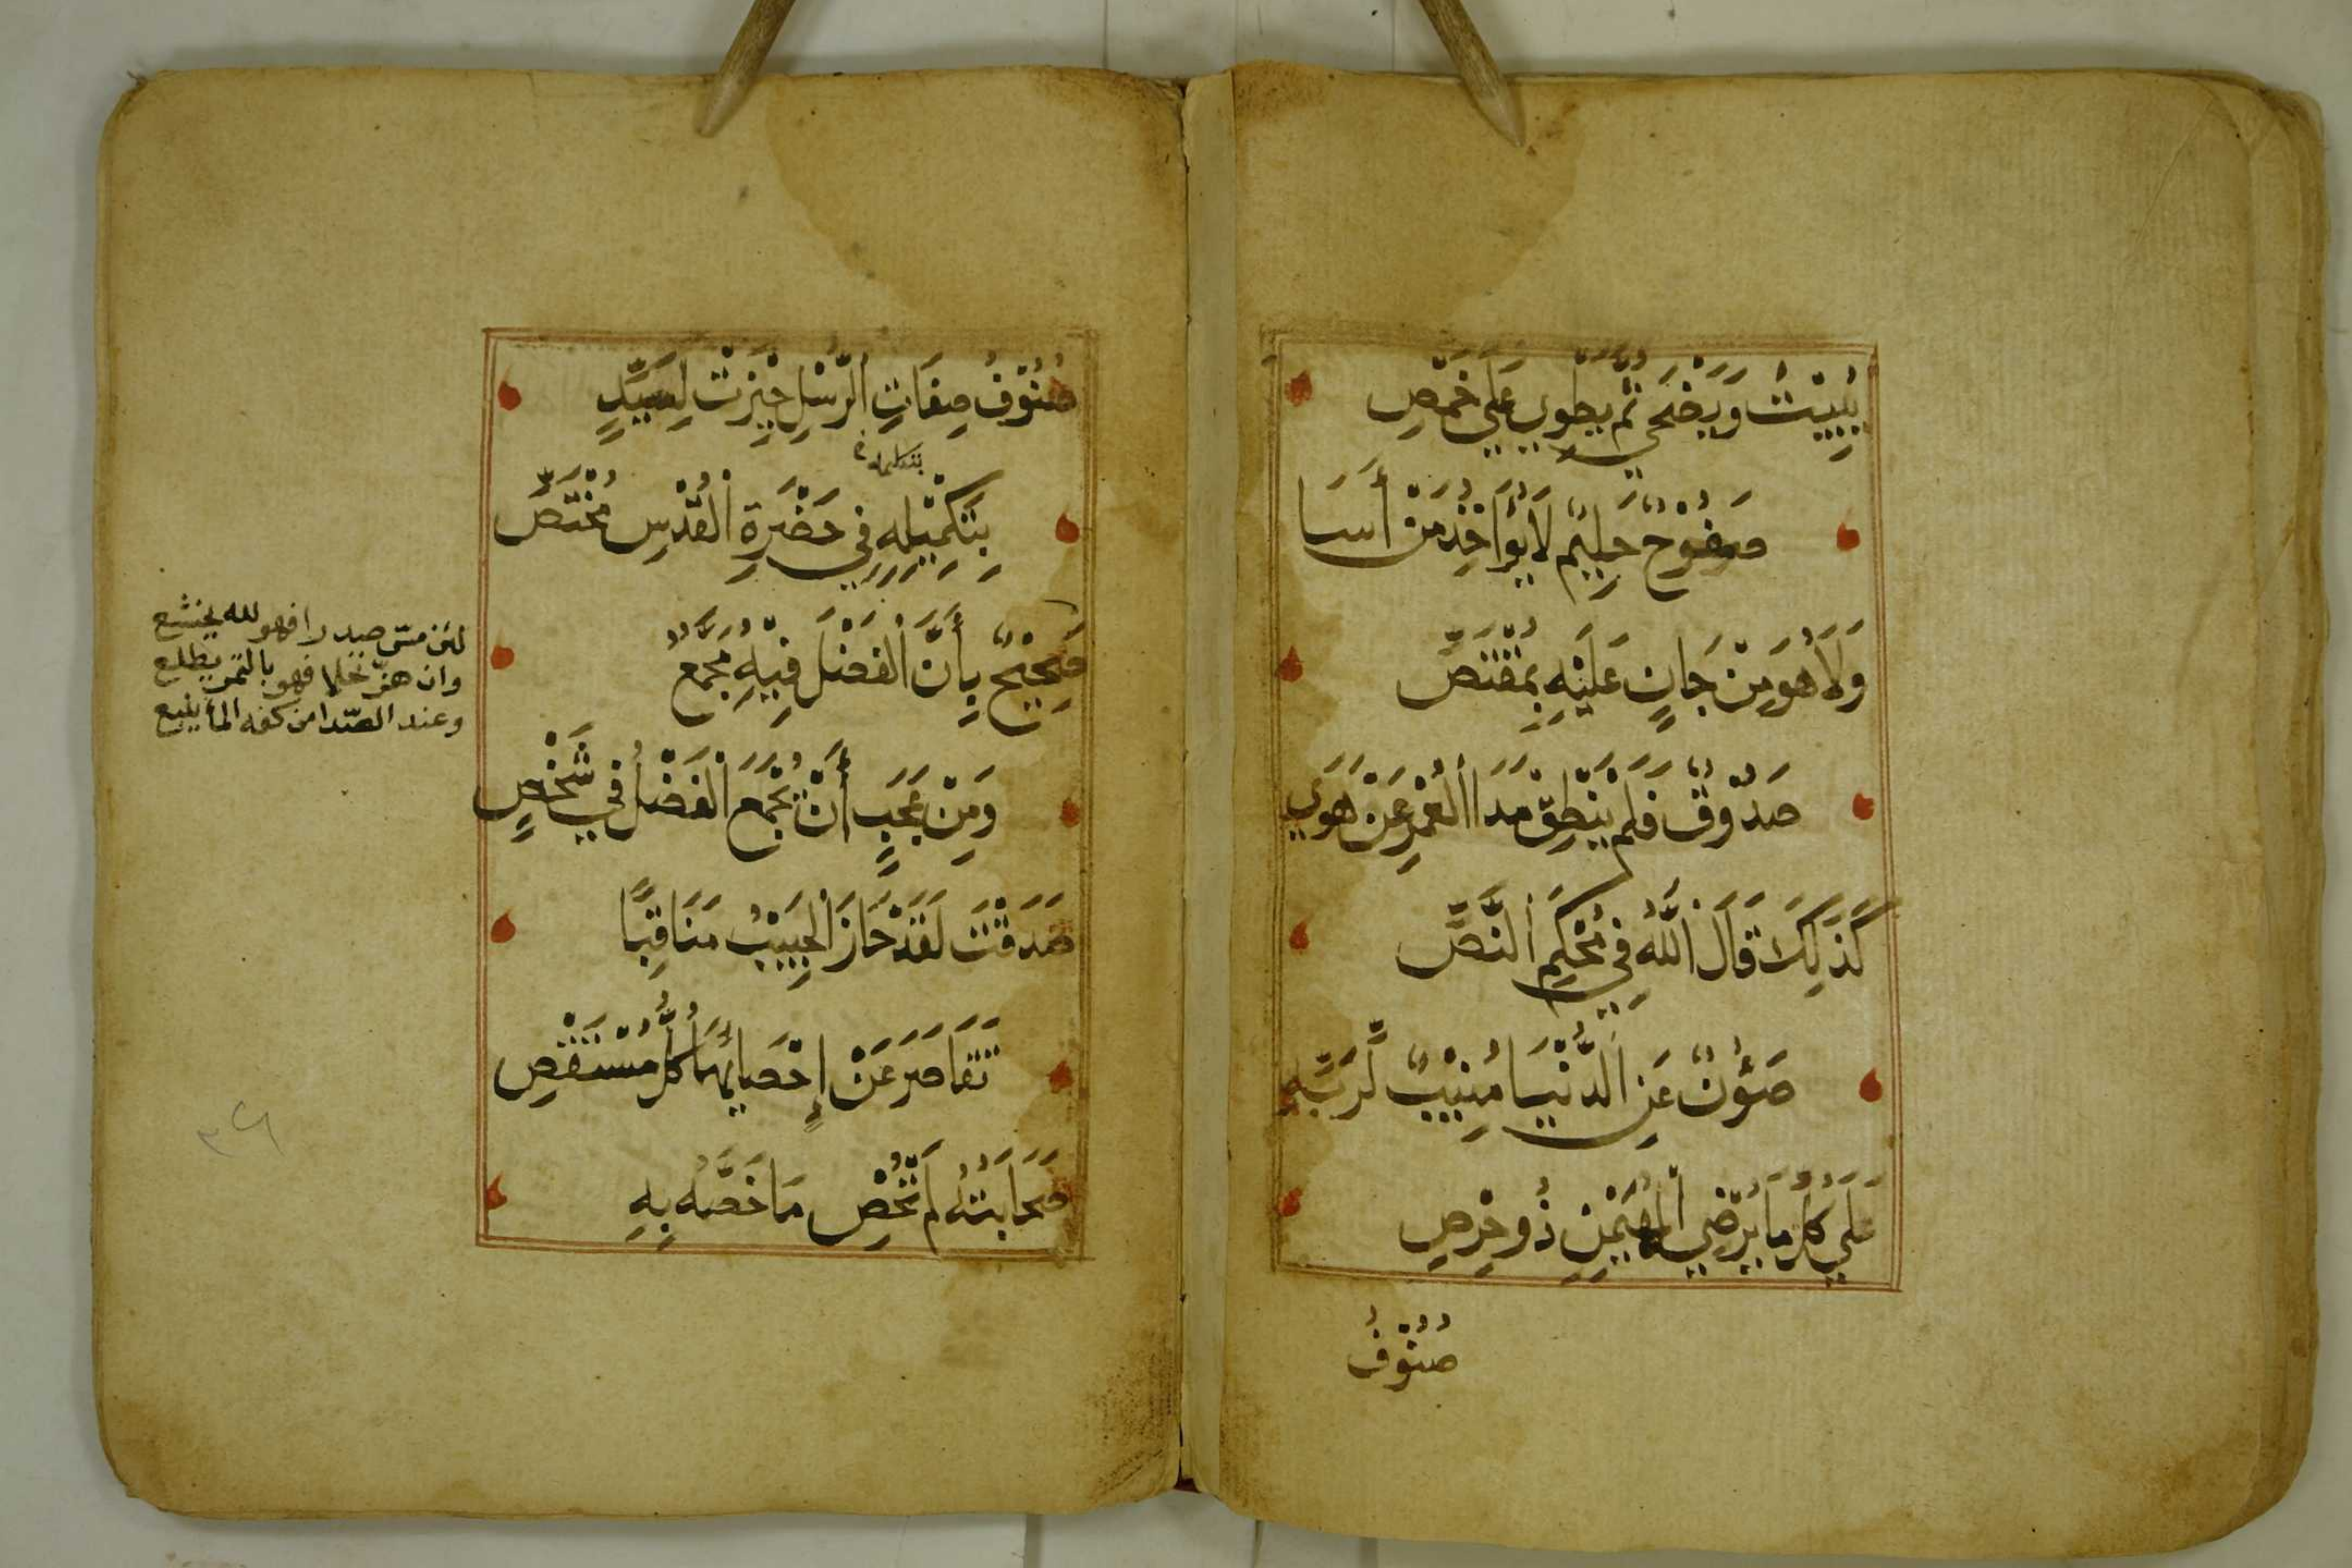 يَبِيْتُ وَيَضْحَي ثُمَّ يَطْوِي عَلَي خَمْصِ
صَفُوْحٌ حَلِيْمٌ لَا يُؤَاخِذُ مَنْ أَسَا
وَلَا هُوَ مِنْ جَانٍ عَلَيْهِ بِمُقْتَصِّ
صَدُوْقٌ فَلَمْ يَنْطِقْ مَدَا الْعُمْرِ عَنْ هَوَي
كَذَلِكَ قَالَ اللَّهُ فِي مُحْكَمِ النَّصِّ
صَؤُنٌ عَنِ الدُّنْيَا مُنِيْبٌ لِرَبِّهِ
عَلَي كُلِّ مَا يُرْضِي الْمُهَيْمِنِ ذُو حِرْصِ
صُنُوْفُ
صُنُوْفُ صِفَاتِ الرُّسْلِ حِيْزَتْ لِسَيِّدٍ
بِتَكْمِيْلِهِ فِي حَضْرَةِ الْقُدْسِ مُخْتَصِّ
صَحِيْحٌ بِأَنَّ الْفَضْلَ فِيْهِ مُجَمَّعٌ
وَمِنْ عَجَبٍ أَنْ يُجْمَعَ الْفَضْلُ فِي شَخْصٍ
صَدَقْتَ لَقَدْ حَازَ الْحَبِيْبُ مَنَاقِبًا
تَقَاصَرَ عَنْ إِحْصَائِهَا كُلُّ مُسْتَقْصِ
صَحَابَتُهُ لَمْ تُحْصِ مَا خَصَّهُ بِهِ
لئن مسّ صدرا فهو لله يخشع
وان هزّ نخلا فهو بالتمر يطلع
وعند الصّدا من كفه الماء ينبع